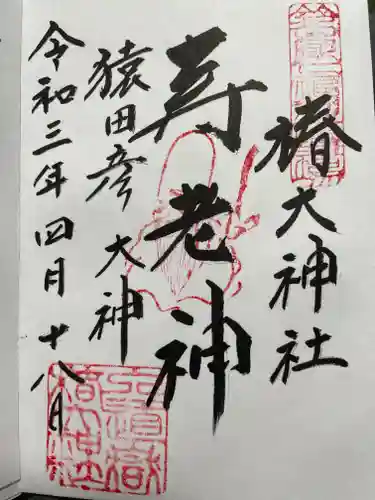 椿大神社
寿老神
猿田彦大神
令和三年四月十八日